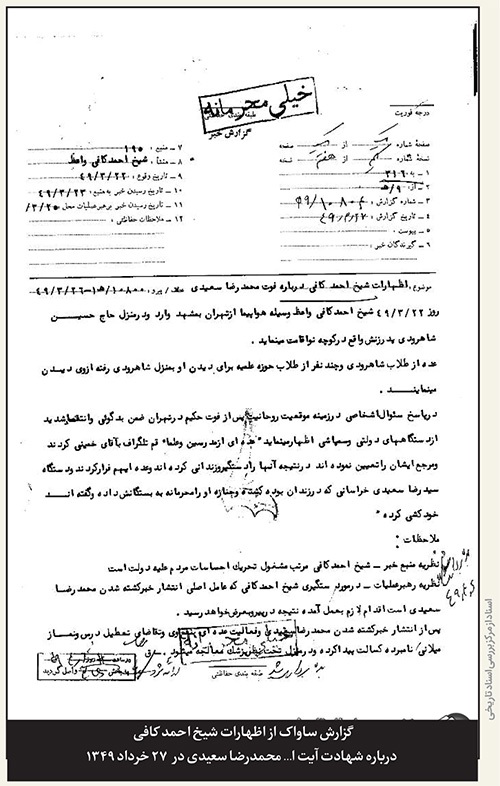 خیلی محرمانه
طبقه بندی حفاظتی
گزارش خبر
درجه فوریت
صفحه شماره یک از یک صفحه
نسخه شماره از هفت نسخه
۱ ـ به ۳۱۶
۲ ـ از ۹/ه
۳ ـ شماره گزارش
۴ ـ تاریخ گزارش
۵ ـ پیوست
۶ ـ گیرندگان خبر :
۷ ـ منبع : ۱۹۵
۸ ـ منشأ : شیخ احمد کافی واعظ
۹ ـ تاریخ وقوع : ۴۹/۳/۲۲
۱۰ ـ تاریخ رسیدن خبر به منبع : ۴۹/۳/۲۳
۱۱ ـ تاریخ رسیدن خبر برهبر عملیات محل
۱۲ ـ ملاحظات حفاظتی :
موضوع : اظهارات شیخ احمد کافی درباره فوت محمد رضا سعیدی
روز ۴۹/۳/۲۲ شیخ احمد کافی واعظ وسیله هواپیما ازتهران بمشهد وارد ودرمنزل حاج حسین
شاهرودی پدرزنش واقع درکوچه نو اقامت مینماید .
عده از طلاب شاهرودی وچند نفر از طلاب حوزه علمیه برای دیدن او بمنزل شاهرودی رفته ازوی دیدن
مینمایند .
درپاسخ سئوال اشخاصی درزمینه موقعیت روحانیت پس از فوت حکیم درتهران ضمن بدگوئی وانتقاد شدید
ازدستگاههای دولتی وسیاسی اظهار مینماید "عده ای ازمدرسین وعلماء قم تلگراف بآقای خمینی کردند
ومرجع ایشان را تعیین نموده اند درنتیجه آنها را دستگیر وزندانی کرده اند وعده ایهم فرارکردند ودستگاه
سید رضا سعیدی خراسانی که درزندان بوده کشته وجنازه او را محرمانه به بستگانش داده وگفته اند
خودکشی کرده "
ملاحظات :
نظریه منبع خبر ـ شیخ احمد کافی مرتب مشغول تحریک احساسات مردم علیه دولت است
نظریه رهبرعملیات ـ درمورد دستگیری شیخ احمد کافی که عامل اصلی انتشار خبرکشته شدن محمد رضا
سعیدی است اقدام لازم بعمل آمده نتیجه درپیرو بعرض خواهد رسید .
پس از انتشار خبرکشته شدن محمد رضا سعیدی وفعالیت عده ای وتقاضای تعطیل درس ونماز
میلانی نامبرده کسالت پیدا کرده ودرمنزل تحت نظر پزشک معالجه میشود .
طبقه بندی حفاظتی
اسناد از مرکز بررسی اسناد تاریخی
گزارش ساواک از اظهارات شیخ احمد کافی
درباره شهادت آیت ا... محمدرضا سعیدی در ۲۷ خرداد ۱۳۴۹